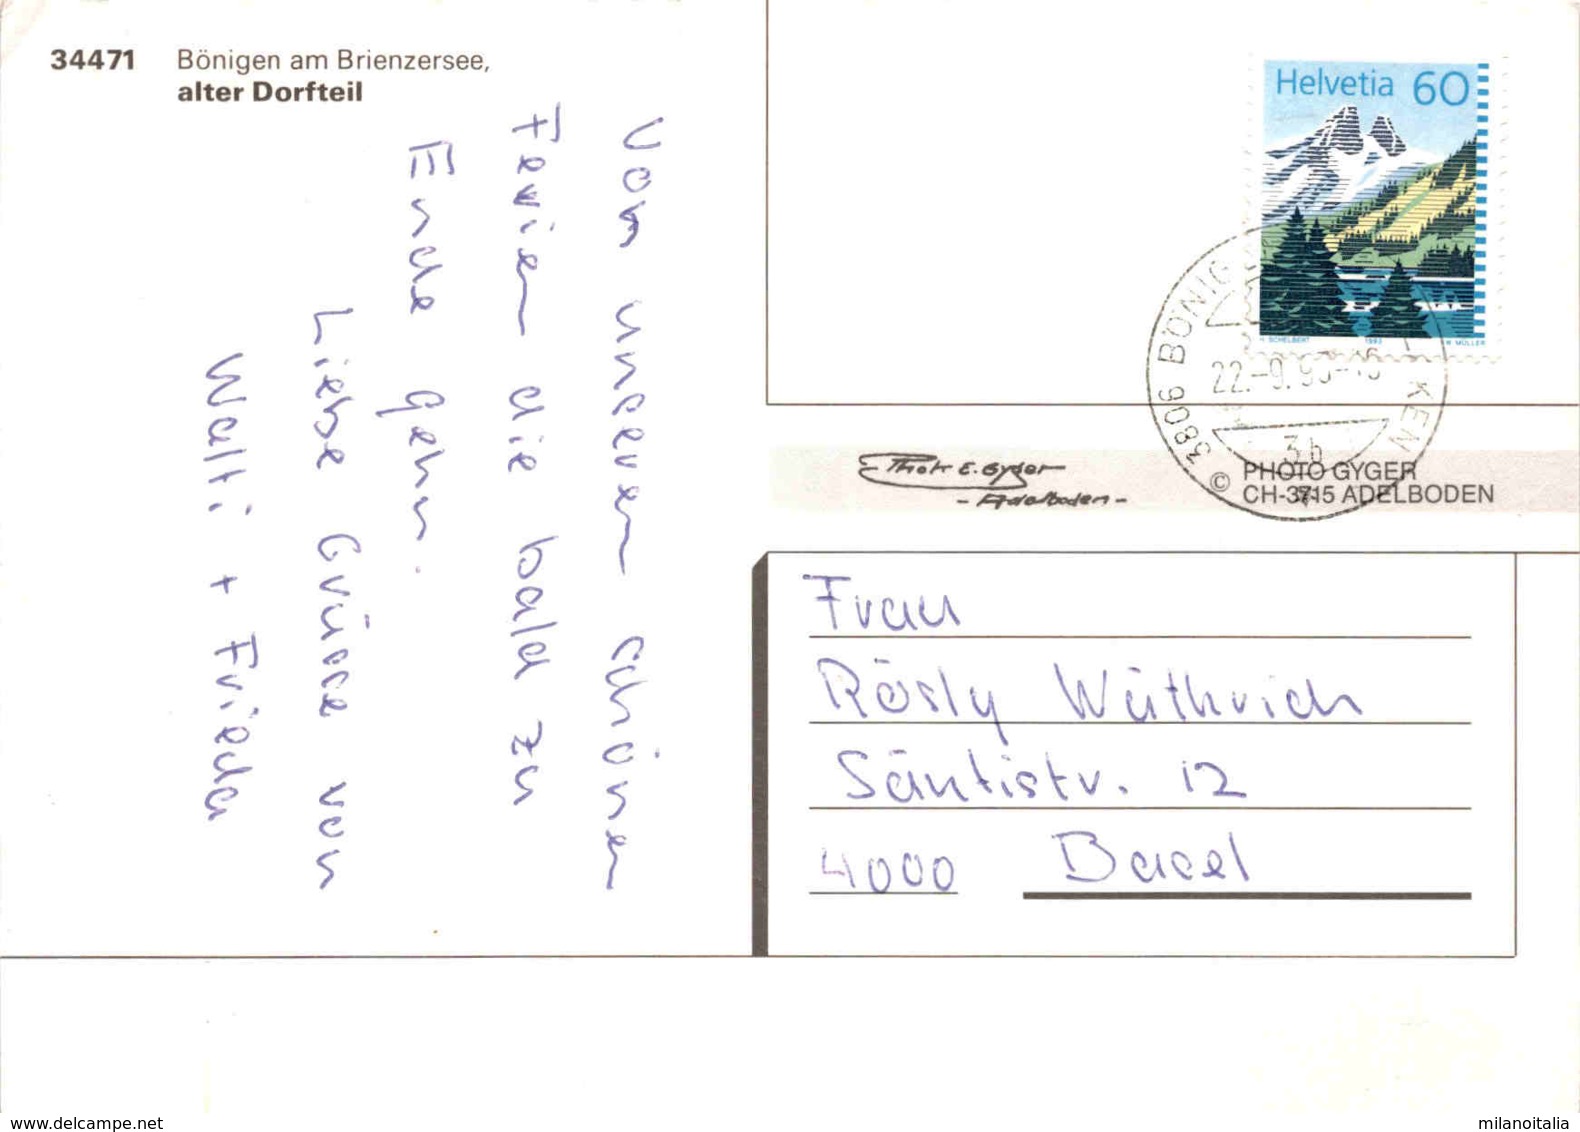 34471 Bönigen am Brienzersee,
alter Dorfteil
Von unseren schönen
Ferien die bald zu
Ende gehn.
Liebe Grüsse von
Walti + Frieda
Helvetia 60
H. SCHELBERT 1993 M. MÜLLER
3806 BÖNIG KEN
22.-9.93-16
3b
Photo E. Gyger
- Adelboden -
© PHOTO GYGER
CH-3715 ADELBODEN
Frau
Rösly Wüthrich
Säntistr. 12
4000 Basel
www.delcampe.net
milanoitalia